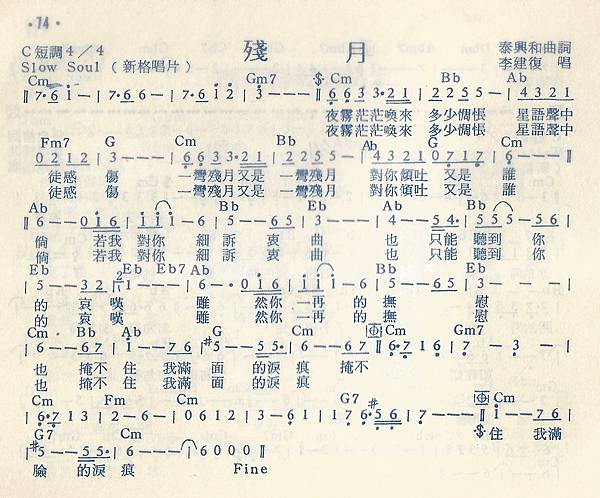 •74•
C 短調 4/4 殘 月 泰興和曲詞
Slow Soul (新格唱片) 李建復 唱
Cm Gm7 Cm Bb Ab
|7·6 i — |7·66 — |7·6 i2 |3 — — — ‖6 633·21|2255 — |4321
夜霧茫茫喚來 多少惆悵 星語聲中
夜霧茫茫喚來 多少惆悵 星語聲中
Fm7 G Cm Bb Ab G Cm
0212|3 — — — |6633·21|2255 — |43210717|6 — — — ‖
徒感 傷 一彎殘月又是 一彎殘月 對你傾吐 又是 誰
徒感 傷 一彎殘月又是 一彎殘月 對你傾吐 又是 誰
Ab Bb Eb Ab Bb
|6 — 0i6|iii — |6 — 5 — |3 — — — |4 — — 54·|555 — 56|
倘 若我 對你 細 訴 衷 曲 也 只能 聽到 你
倘 若我 對你 細 訴 衷 曲 也 只能 聽到 你
Eb Eb Eb7 Ab Bb Eb
|5 — 32 |1 — — |6 — 0i6|iii — |6 — 5 — |3 — — — |
的 哀嘆 雖 然你 一再 的 撫 慰
的 哀嘆 雖 然你 一再 的 撫 慰
Cm Bb Ab G Cm Cm Gm7
|6 — 67|i — 76|#5 — 55·|6 — 67 ‖6·7i6|i67 — |3 — |
也 掩不 住 我滿 面 的淚 痕 掩不
也 掩不 住 我滿 面 的淚 痕
Cm Fm Cm G7 Cm
|6·713|2 — 6 — |0612|3 — 61|17·#56|7 — — — ‖i — 76|
住 我滿
G7 Cm
#5 — 55·|6 — — — |60000‖
臉 的淚 痕 Fine